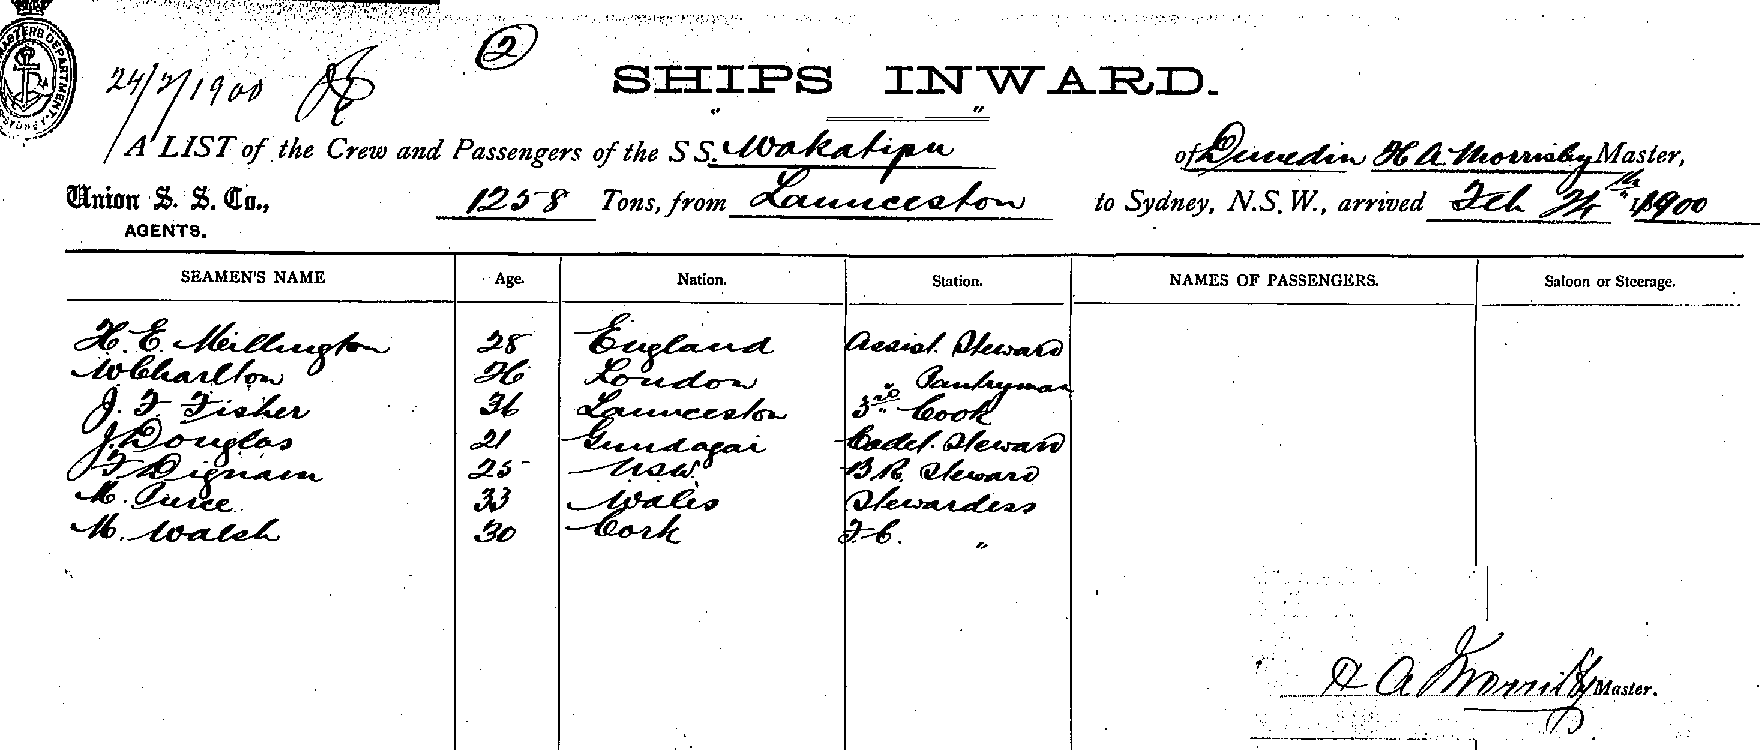 MASTERS DEPARTMENT
24/2/1900
2
SHIPS INWARD.
A LIST of the Crew and Passengers of the S S. "Wakatipu" of Dunedin H A Morrisby Master,
Union S. S. Co., 1258 Tons, from Launceston to Sydney, N.S.W., arrived Feb 24th 1900
AGENTS.
SEAMEN'S NAME Age. Nation. Station. NAMES OF PASSENGERS. Saloon or Steerage.
H. E. Millington 28 England Assist. Steward
W Charlton 26 London " Pantryman
J. F. Fisher 36 Launceston 3rd Cook
J. Douglas 21 Gundagai Cadet. Steward
F Dignam 25 NSW. B R. Steward
M. 33 Wales Stewardess
M. Walsh 30 Cork F. C. "
H A Morrisby Master.